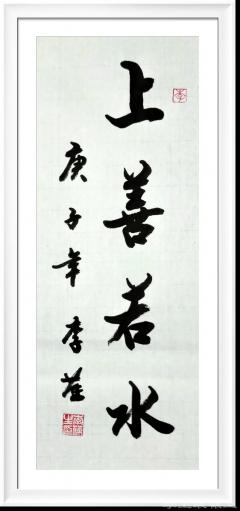 上善若水
庚子年 李
李